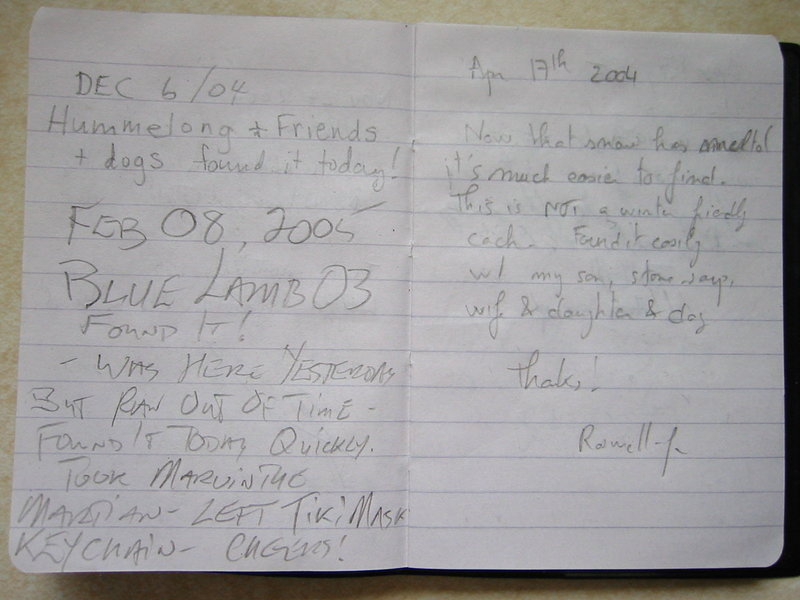 DEC 6/04
Hummelong + Friends
+ dogs found it today!
FEB 08, 2005
BLUE LAMB 03
FOUND IT!
- WAS HERE YESTERDAY
BUT RAN OUT OF TIME -
FOUND IT TODAY QUICKLY.
TOOK MARVIN THE
MARTIAN - LEFT TIKI MASK
KEYCHAIN - CHEERS!
Apr 17th 2004
Now that snow has
it's much easier to find.
This is NOT a winter
cach. Found it easily
w/ my son,
wife & daughter & dog
Thaks!